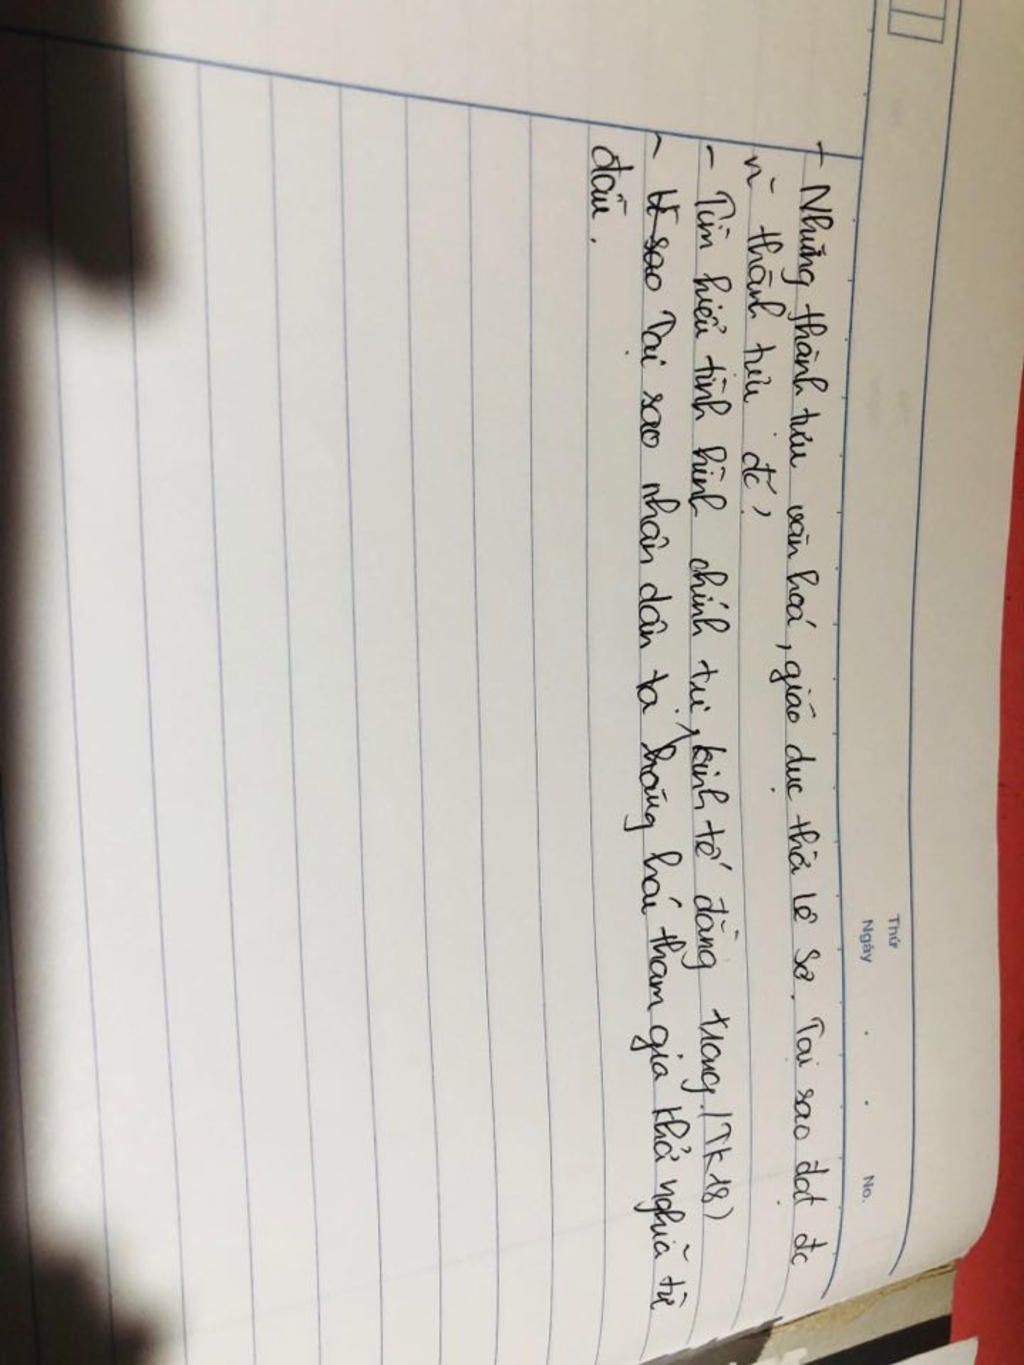 Thứ
Ngày . . No.
- Những thành tựu văn hoá, giáo dục thời Lê Sơ. Tại sao đạt đc
n~ thành tựu đó,
- Tìm hiểu tình hình chính trị, kinh tế đàng trong. (TK 18)
- Vì sao Tại sao nhân dân ta hăng hái tham gia khởi nghĩa từ
đầu.